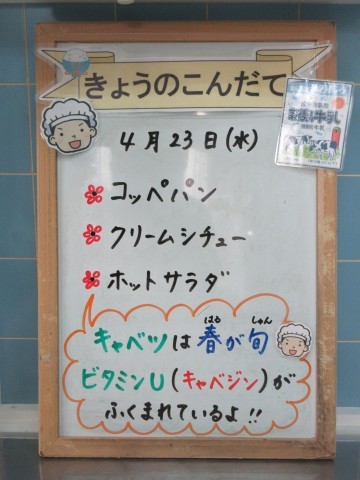 きょうのこんだて
牛乳
4月23日(水)
コッペパン
クリームシチュー
ホットサラダ
キャベツは春が旬
はる しゅん
ビタミンU(キャベジン)が
ふくまれているよ!!